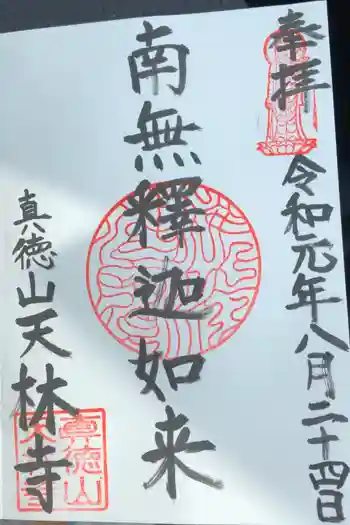 奉拝
令和元年八月二十四日
南無釋迦如来
真徳山天林寺
真徳山
天林寺